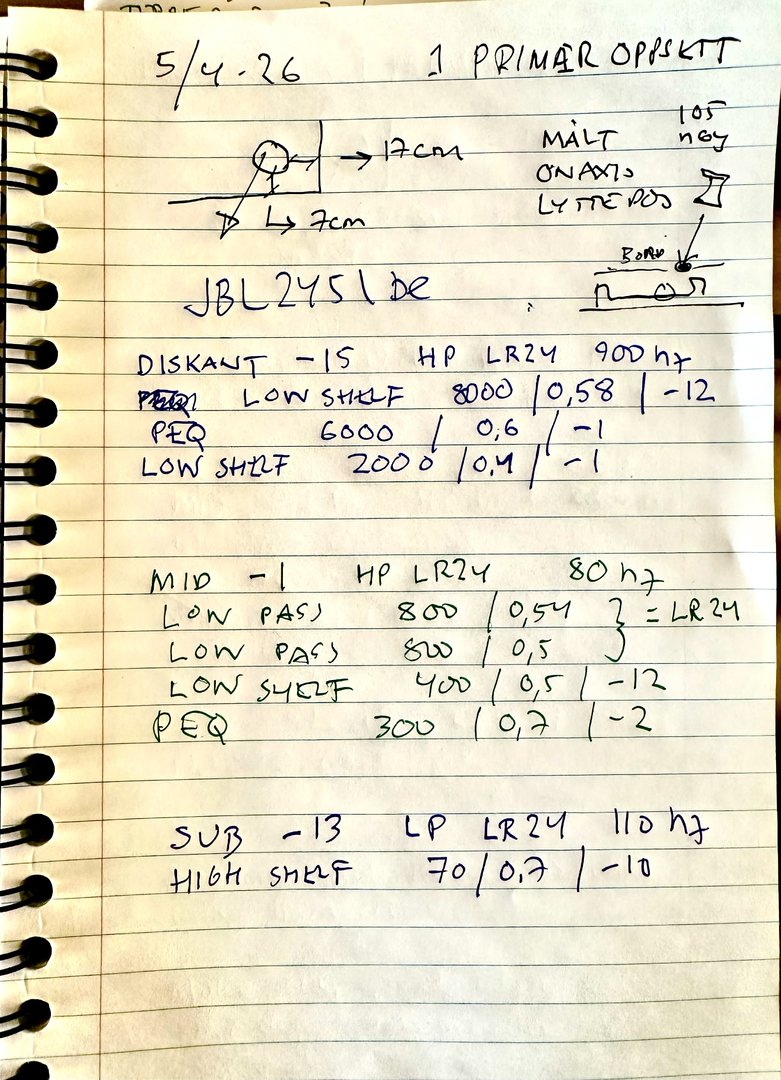 5/4-26 1 PRIMÆR OPPSETT
17cm
7cm
MÅLT 105
ON AXIS høy
LYTTEPOS
BORD
JBL 2451 De
DISKANT -15 HP LR24 900 hz
LOW SHELF 8000 / 0,58 / -12
PEQ 6000 / 0,6 / -1
LOW SHELF 2000 / 0,4 / -1
MID -1 HP LR24 80 hz
LOW PASS 800 / 0,54 } = LR24
LOW PASS 800 / 0,5
LOW SHELF 400 / 0,5 / -12
PEQ 300 / 0,7 / -2
SUB -13 LP LR24 110 hz
HIGH SHELF 70 / 0,7 / -10